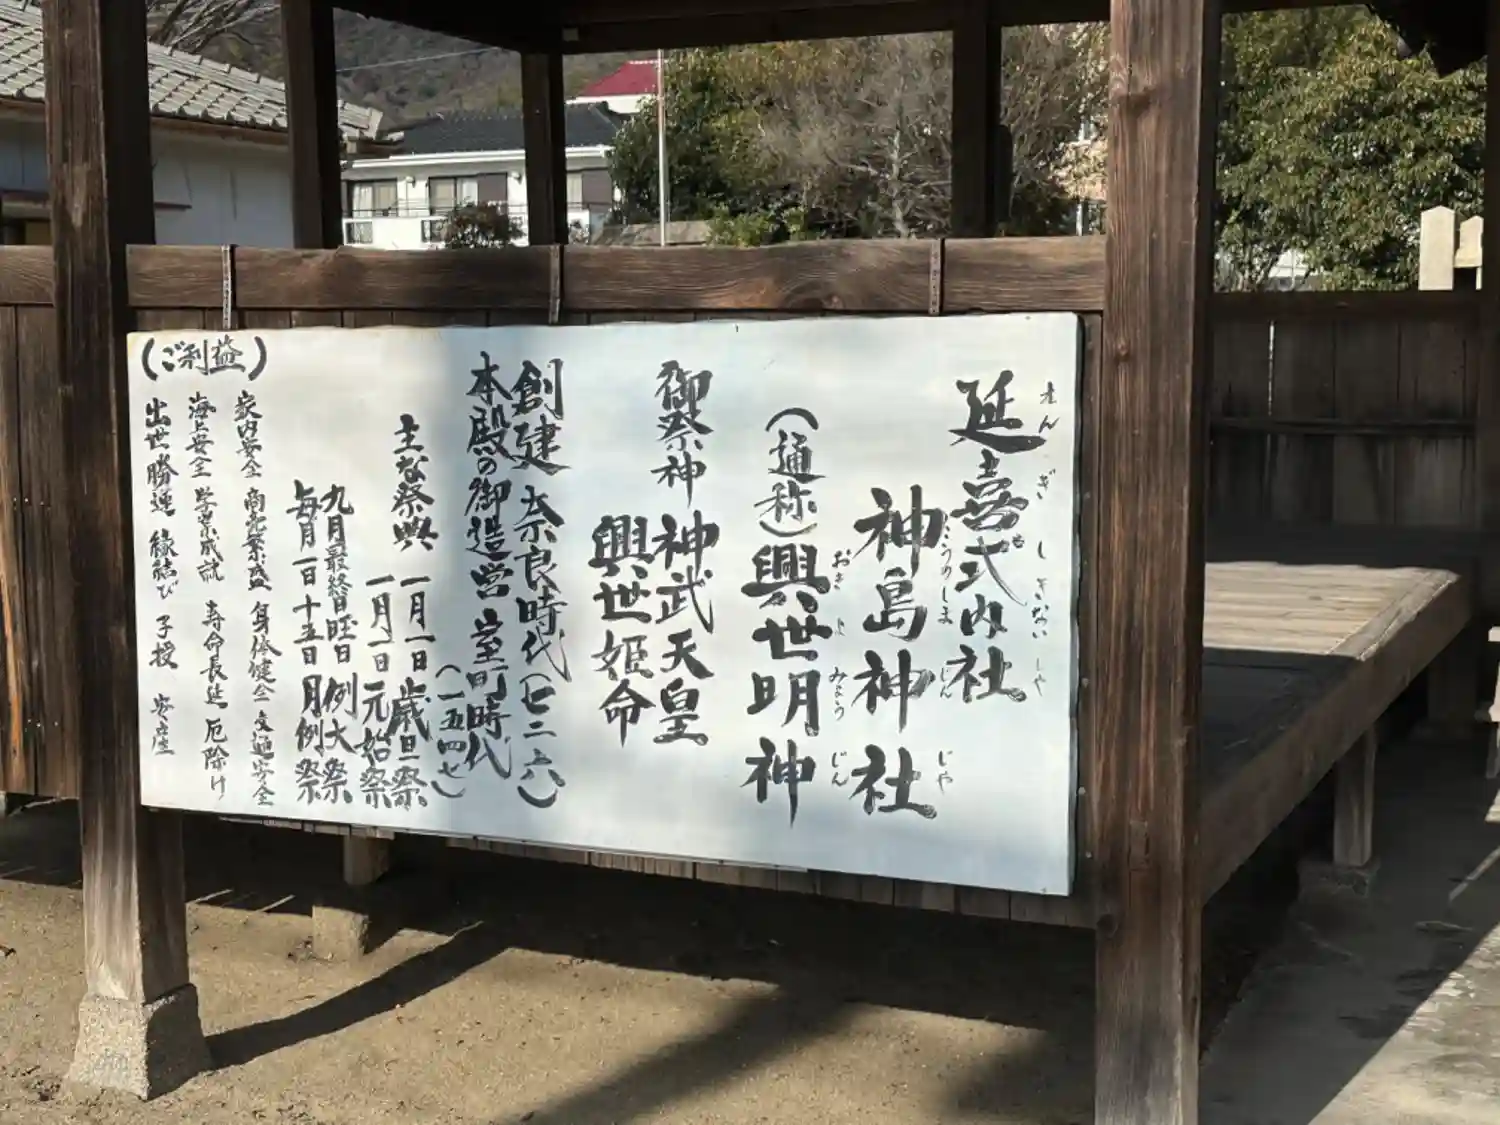 延喜式内社
えんぎしきないしゃ
神島神社
こうのしまじんじゃ
(通称)興世明神
おきよみょうじん
御祭神 神武天皇
興世姫命
創建 奈良時代(七三六)
本殿の御造営 室町時代(一五四七)
主な祭典 一月一日 歳旦祭
一月一日 元始祭
九月最終日曜日 例大祭
毎月一日十五日 月例祭
(ご利益)
家内安全 商売繁盛 身体健全 交通安全
海上安全 学業成就 寿命長延 厄除け
出世勝運 縁結び 子授 安産